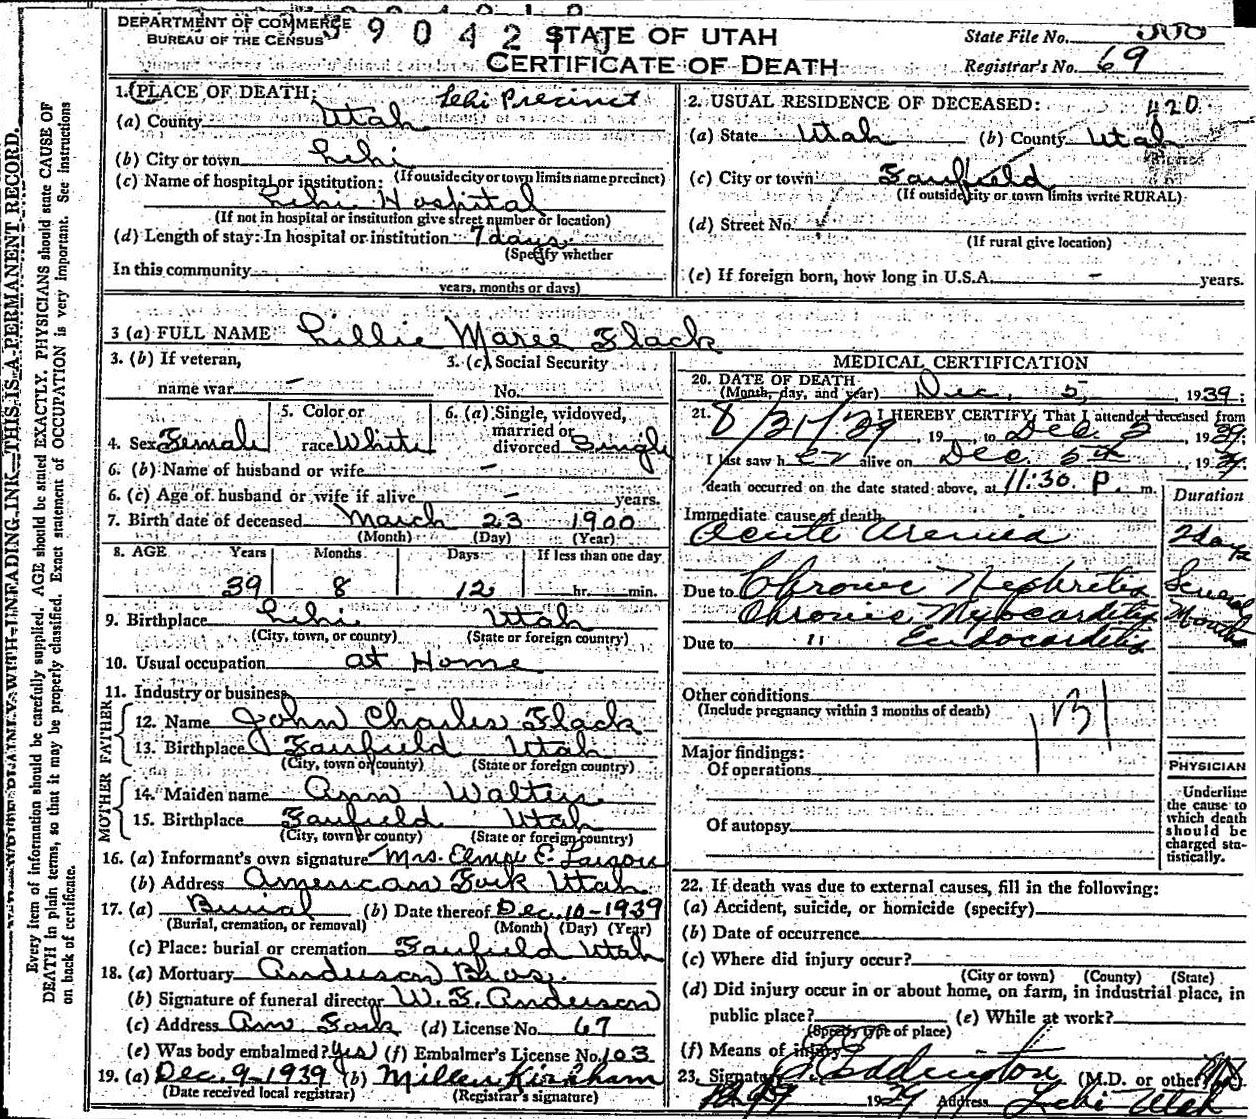 DEPARTMENT OF COMMERCE
BUREAU OF THE CENSUS
STATE OF UTAH
CERTIFICATE OF DEATH
State File No.
Registrar's No. 69
1. PLACE OF DEATH: Lehi Precinct
(a) County Utah
(b) City or town Lehi
(If outside city or town limits name precinct)
(c) Name of hospital or institution:
Lehi Hospital
(If not in hospital or institution give street number or location)
(d) Length of stay: In hospital or institution 7 days
(Specify whether
In this community
years, months or days)
2. USUAL RESIDENCE OF DECEASED:
(a) State Utah (b) County Utah
(c) City or town Fairfield
(If outside city or town limits write RURAL)
(d) Street No.
(If rural give location)
(e) If foreign born, how long in U.S.A. - years.
3 (a) FULL NAME Lillie Maree Flack
3. (b) If veteran,
name war -
3. (c) Social Security
No.
4. Sex Female
5. Color or
race White
6. (a) Single, widowed,
married or
divorced Single
6. (b) Name of husband or wife -
6. (c) Age of husband or wife if alive - years.
7. Birth date of deceased March 23 1900
(Month) (Day) (Year)
8. AGE Years Months Days If less than one day
39 8 12 hr. min.
9. Birthplace Lehi Utah
(City, town, or county) (State or foreign country)
10. Usual occupation at Home
11. Industry or business -
FATHER
12. Name John Charles Flack
13. Birthplace Fairfield Utah
(City, town or county) (State or foreign country)
MOTHER
14. Maiden name Ann Walters
15. Birthplace Fairfield Utah
(City, town or county) (State or foreign country)
16. (a) Informant's own signature Mrs. Elmer E. Larson
(b) Address American Fork Utah
17. (a) Burial (b) Date thereof Dec. 10-1939
(Burial, cremation, or removal) (Month) (Day) (Year)
(c) Place: burial or cremation Fairfield Utah
18. (a) Mortuary Anderson Bros.
(b) Signature of funeral director W. F. Anderson
(c) Address Am. Fork (d) License No. 67
(e) Was body embalmed? Yes (f) Embalmer's License No. 103
19. (a) Dec. 9-1939 (b) Millen Kirkham
(Date received local registrar) (Registrar's signature)
MEDICAL CERTIFICATION
20. DATE OF DEATH
(Month, day, and year) Dec. 5, 1939
21. I HEREBY CERTIFY, That I attended deceased from
8/21/39, 19 , to Dec. 5 1939;
I last saw her alive on Dec. 5th, 1939
death occurred on the date stated above, at 11:30 P. m.
Duration
Immediate cause of death
Acute Uremia 2 days
Due to Chronic Nephritis Several
Chronic Myocarditis Months
Due to " Endocarditis
Other conditions
(Include pregnancy within 3 months of death)
131
Major findings:
Of operations
Of autopsy
PHYSICIAN
Underline
the cause to
which death
should be
charged sta-
tistically.
22. If death was due to external causes, fill in the following:
(a) Accident, suicide, or homicide (specify)
(b) Date of occurrence
(c) Where did injury occur?
(City or town) (County) (State)
(d) Did injury occur in or about home, on farm, in industrial place, in
public place? (e) While at work?
(Specify type of place)
(f) Means of injury
23. Signature Eddington (M.D. or other)
Address Lehi Utah
THIS IS A PERMANENT RECORD.
Every item of information should be carefully supplied. AGE should be stated EXACTLY. PHYSICIANS should state CAUSE OF
DEATH in plain terms, so that it may be properly classified. Exact statement of OCCUPATION is very important. See instructions
on back of certificate.